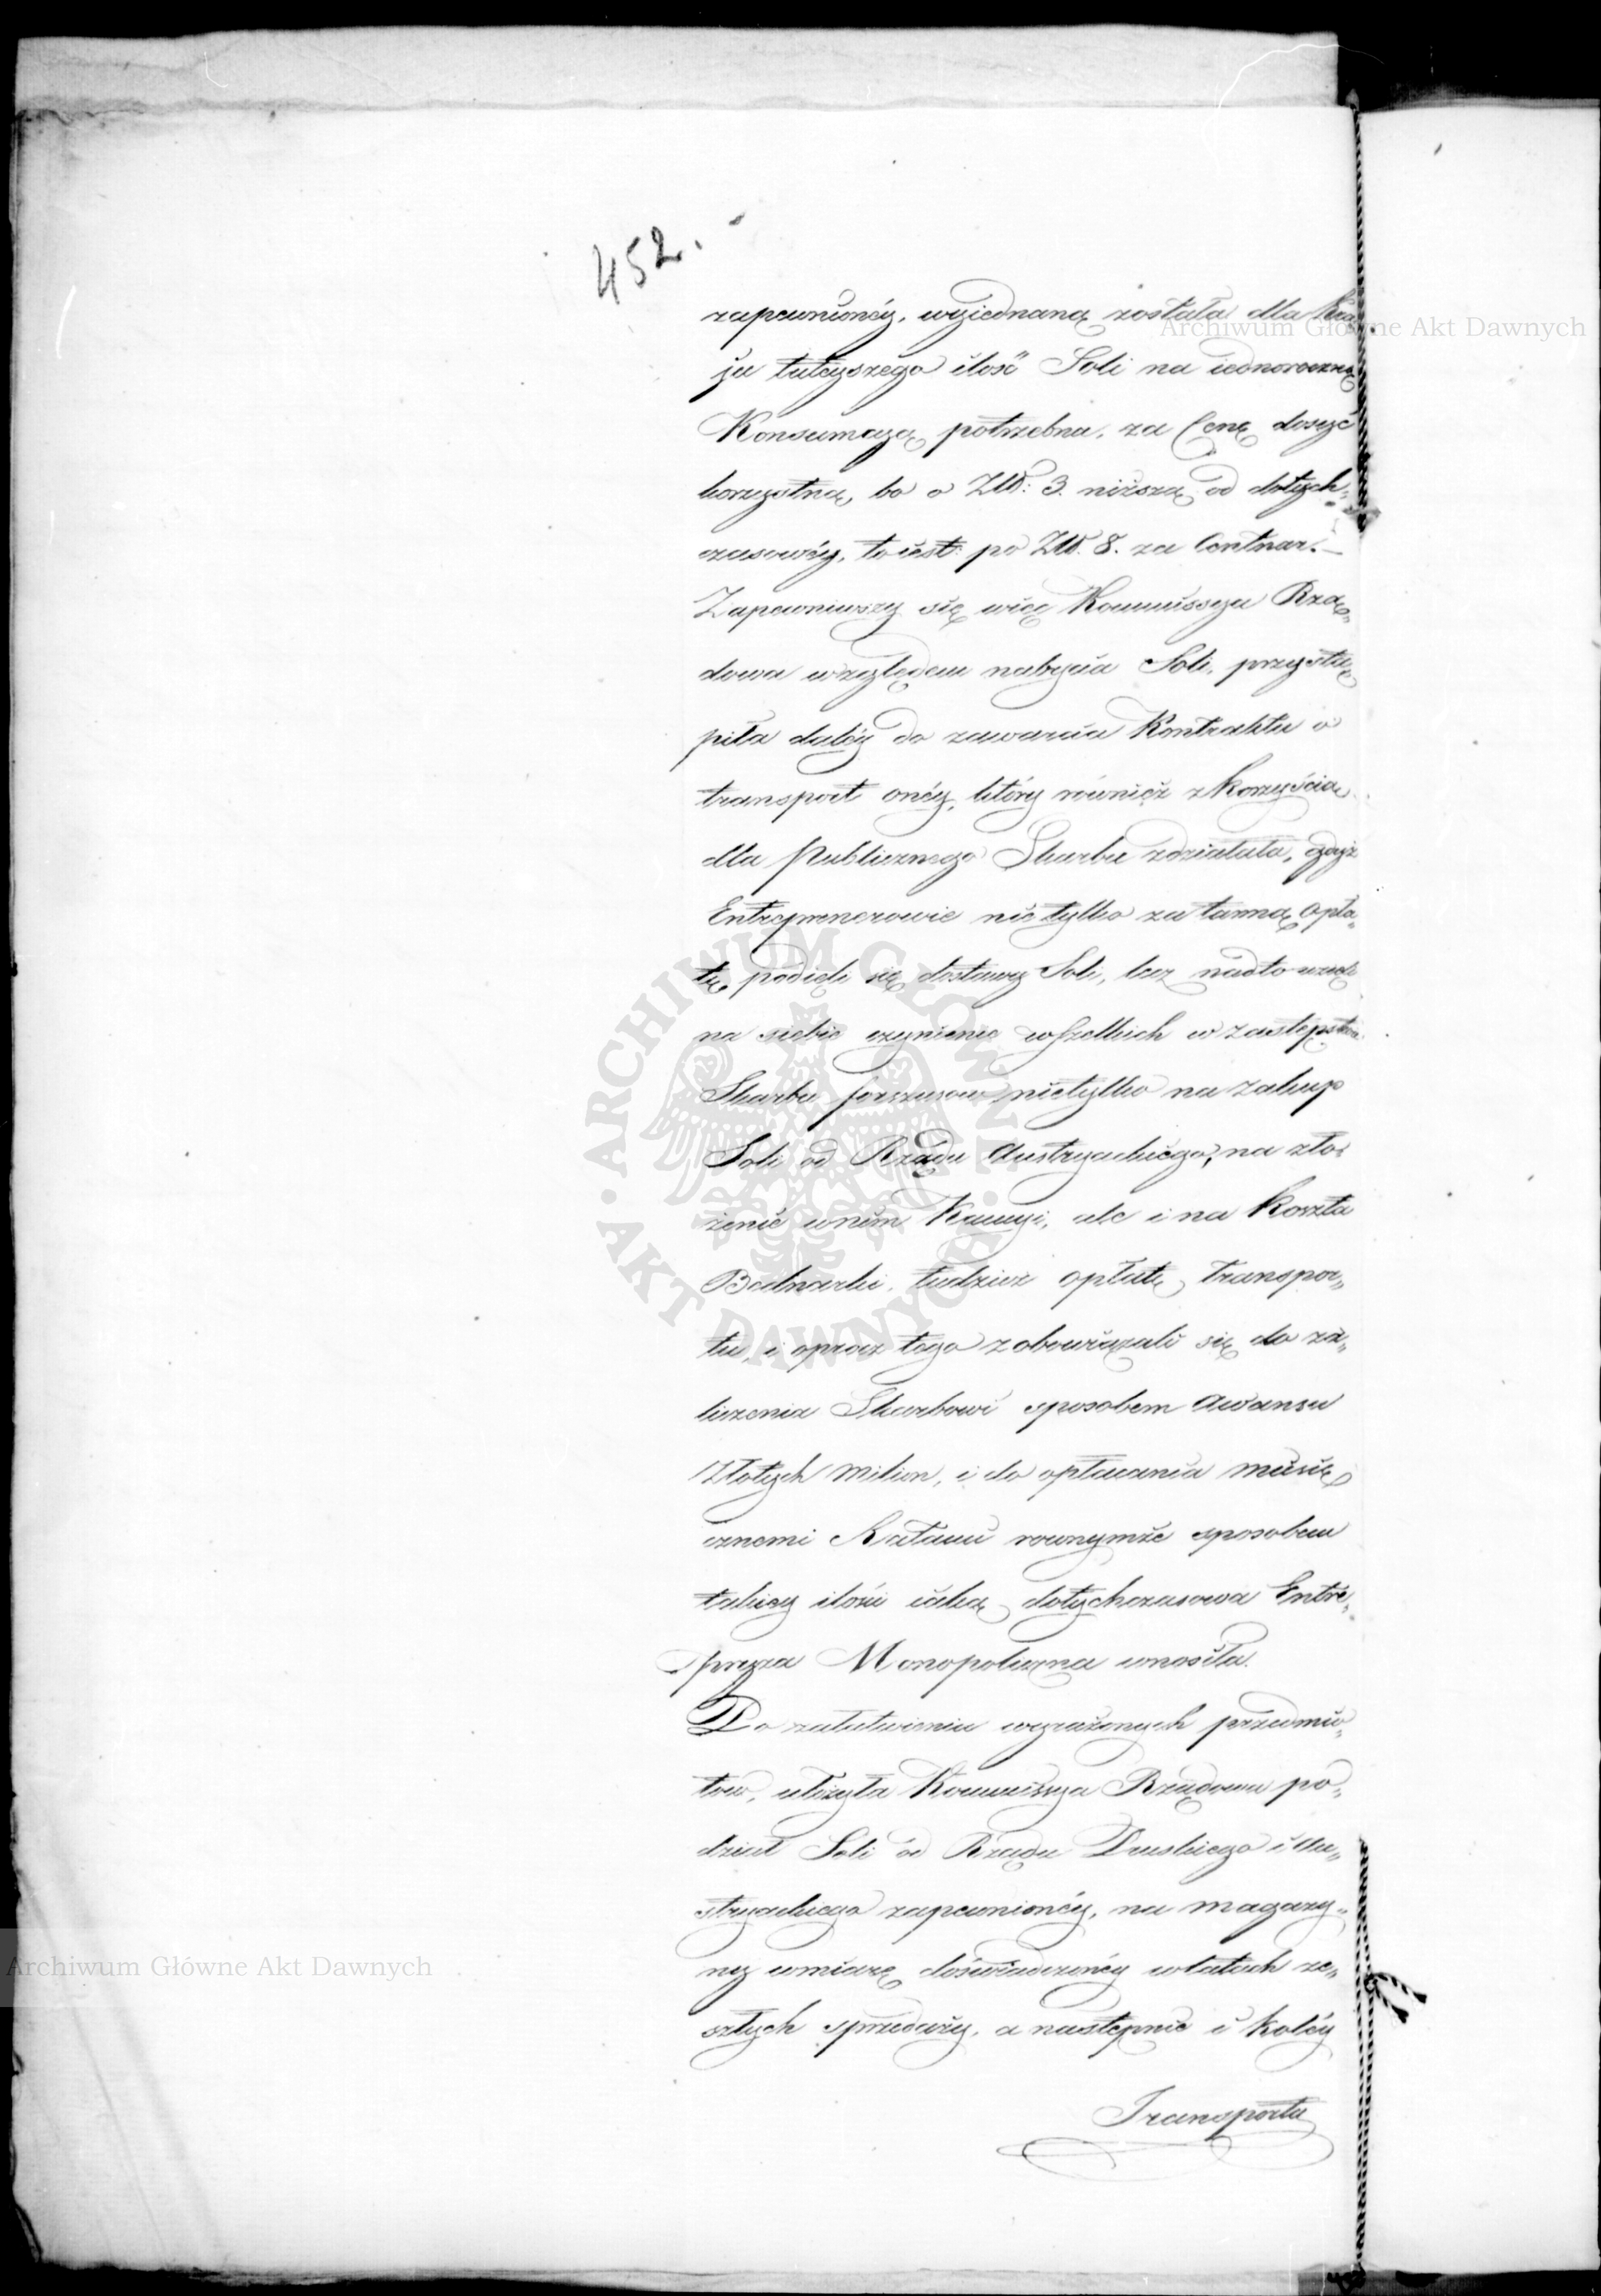 452.
zapewnionéy, wyiednaną została dla Kra„
ju tuteyszego ilość Soli na iednoroczną
Konsumcyą potrzebna, za Cenę dosyć
korzystną, bo o Złł: 3. niższą od dotych„
czasowéy, to iest: po Złł. 8. za Centnar.—
Zapewniwszy się więc Kommissya Rzą„
dowa względem nabycia Soli, przystą„
piła daléy do zawarcia Kontraktu o
transport onéy, który równiéż z korzyścią
dla Publicznego Skarbu zdziałała, gdyż
Entreprenerowie nie tylko za tanną opła„
tę podięli się dostawy Soli, lecz nadto wzięli
na siebie czynienie wszelkich w zastępstwie
Skarbu forszusow nietylko na zakup
Soli od Rządu Austryackiego, na zło„
żenie w nim Kaucyi, ale i na koszta
Bednarki, tudzież opłatę transpor„
tu, i oprocz tego zobowiązali się do za„
liczenia Skarbowi sposobem Awansu
Złotych Milion, i do opłacania miesię„
cznemi Ratami rownymże sposobem
takiey ilości iaką dotychczasowa Entre„
preza Monopoliczna wnosiła.
Po załatwieniu wyrażonych przedmio„
tow, ułożyła Kommissya Rządowa po„
dział Soli od Rządu Pruskiego i Au„
stryackiego zapewnionéy, na magazy„
ny w miarę doświadczonéy w latach ze„
szłych sprzedaży, a następnie i koléy
Transportu
Archiwum Główne Akt Dawnych
Archiwum Główne Akt Dawnych
· ARCHIWUM GŁÓWNE · AKT DAWNYCH